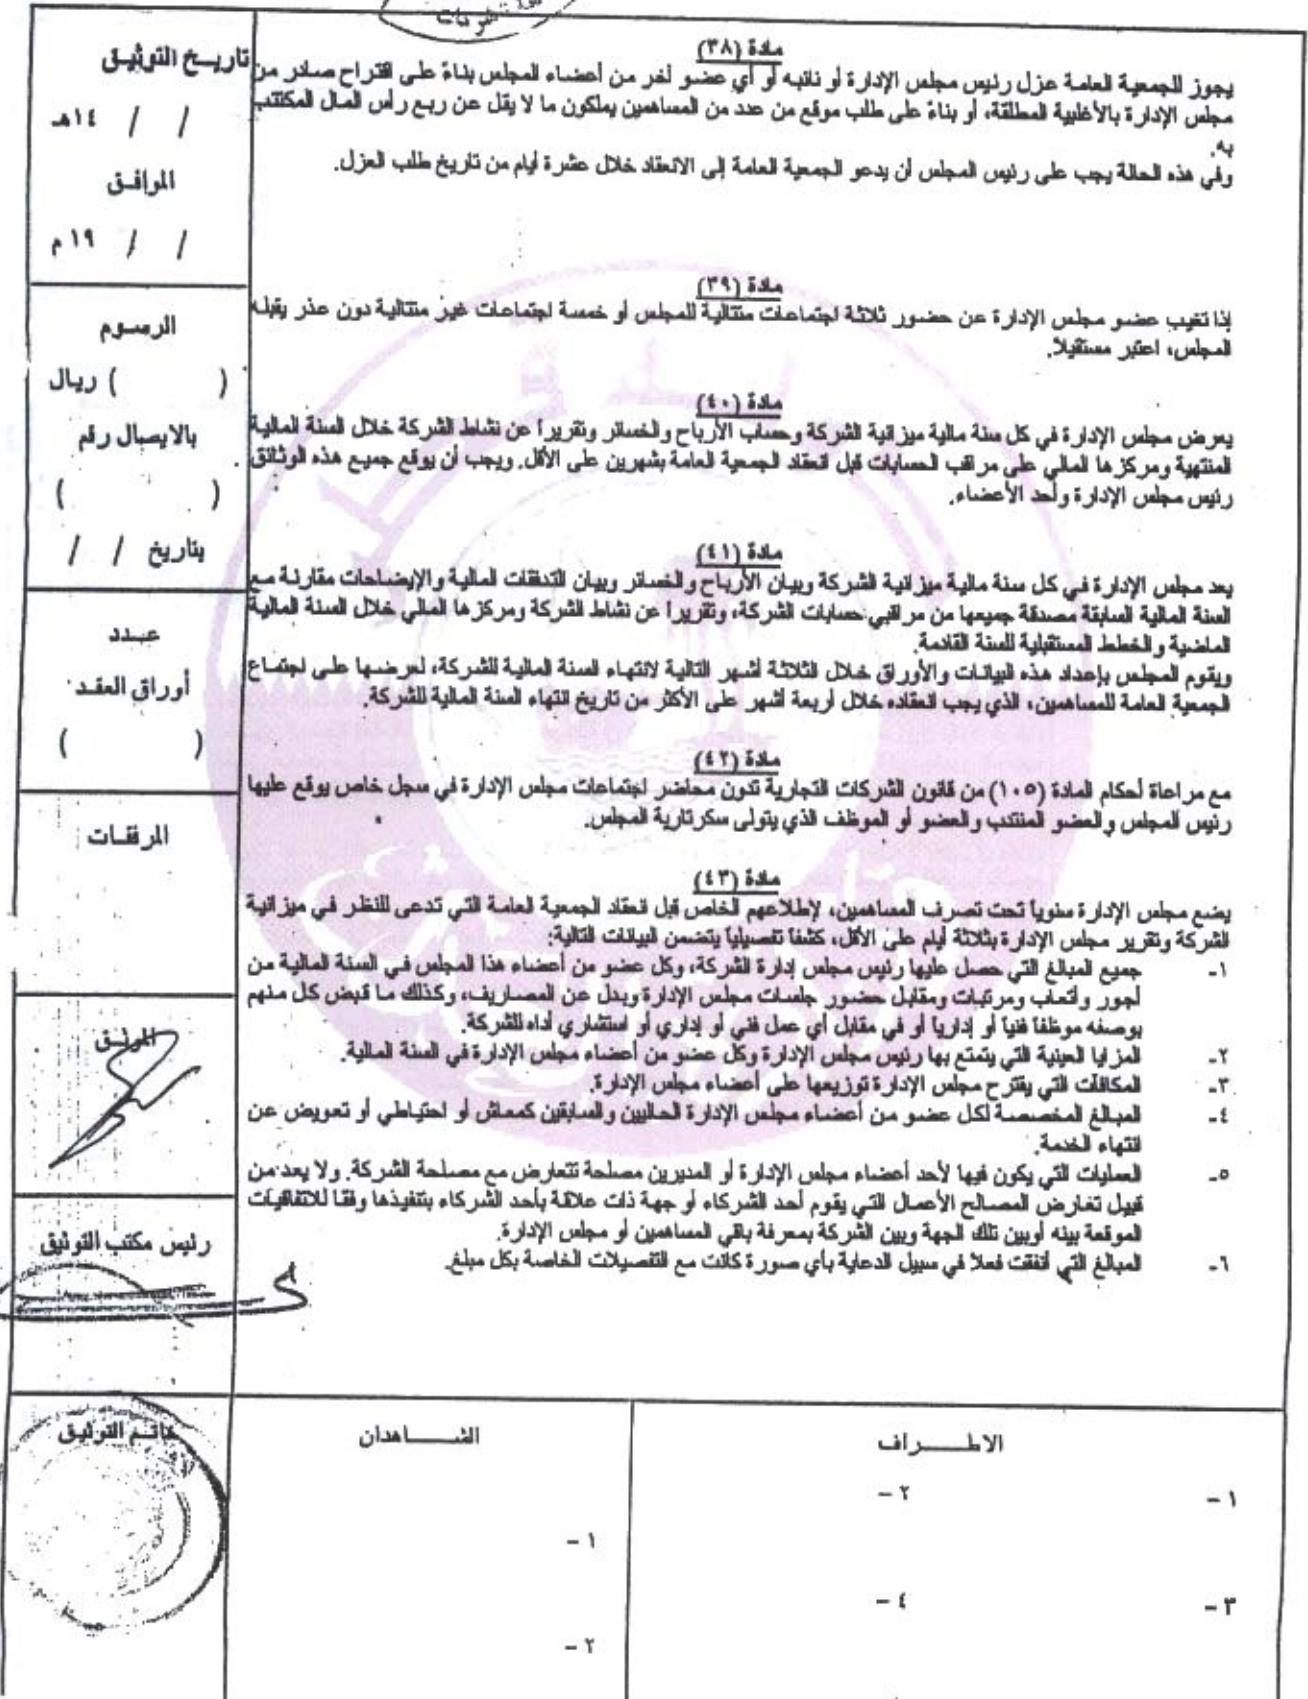 مادة (٣٨)
يجوز للجمعية العامة عزل رئيس مجلس الإدارة أو نائبه أو أي عضو آخر من أعضاء المجلس بناءً على اقتراح صادر من
مجلس الإدارة بالأغلبية المطلقة، أو بناءً على طلب موقع من عدد من المساهمين يملكون ما لا يقل عن ربع رأس المال المكتتب
به.
وفي هذه الحالة يجب على رئيس المجلس أن يدعو الجمعية العامة إلى الانعقاد خلال عشرة أيام من تاريخ طلب العزل.
مادة (٣٩)
إذا تغيب عضو مجلس الإدارة عن حضور ثلاثة اجتماعات متتالية للمجلس أو خمسة اجتماعات غير متتالية دون عذر يقبله
المجلس، اعتبر مستقيلاً.
مادة (٤٠)
يعرض مجلس الإدارة في كل سنة مالية ميزانية الشركة وحساب الأرباح والخسائر وتقريراً عن نشاط الشركة خلال السنة المالية
المنتهية ومركزها المالي على مراقب الحسابات قبل انعقاد الجمعية العامة بشهرين على الأقل. ويجب أن يوقع جميع هذه الوثائق
رئيس مجلس الإدارة وأحد الأعضاء.
مادة (٤١)
يعد مجلس الإدارة في كل سنة مالية ميزانية الشركة وبيان الأرباح والخسائر وبيان التدفقات المالية والإيضاحات مقارنة مع
السنة المالية السابقة مصدقة جميعها من مراقبي حسابات الشركة، وتقريراً عن نشاط الشركة ومركزها المالي خلال السنة المالية
الماضية والخطط المستقبلية للسنة القادمة.
ويقوم المجلس بإعداد هذه البيانات والأوراق خلال الثلاثة أشهر التالية لانتهاء السنة المالية للشركة، لعرضها على اجتماع
الجمعية العامة للمساهمين، الذي يجب انعقاده خلال أربعة أشهر على الأكثر من تاريخ انتهاء السنة المالية للشركة.
مادة (٤٢)
مع مراعاة أحكام المادة (١٠٥) من قانون الشركات التجارية تدون محاضر اجتماعات مجلس الإدارة في سجل خاص يوقع عليها
رئيس المجلس والعضو المنتدب والعضو أو الموظف الذي يتولى سكرتارية المجلس.
مادة (٤٣)
يضع مجلس الإدارة سنوياً تحت تصرف المساهمين، لإطلاعهم الخاص قبل انعقاد الجمعية العامة التي تدعى للنظر في ميزانية
الشركة وتقرير مجلس الإدارة بثلاثة أيام على الأقل، كشفاً تفصيلياً يتضمن البيانات التالية:
١- جميع المبالغ التي حصل عليها رئيس مجلس إدارة الشركة، وكل عضو من أعضاء هذا المجلس في السنة المالية من
أجور وأتعاب ومرتبات ومقابل حضور جلسات مجلس الإدارة وبدل عن المصاريف، وكذلك ما قبض كل منهم
بوصفه موظفاً فنياً أو إدارياً أو في مقابل أي عمل فني أو إداري أو استشاري أداه للشركة.
٢- المزايا العينية التي يتمتع بها رئيس مجلس الإدارة وكل عضو من أعضاء مجلس الإدارة في السنة المالية.
٣- المكافآت التي يقترح مجلس الإدارة توزيعها على أعضاء مجلس الإدارة.
٤- المبالغ المخصصة لكل عضو من أعضاء مجلس الإدارة الحاليين والسابقين كمعاش أو احتياطي أو تعويض عن
انتهاء الخدمة.
٥- العمليات التي يكون فيها لأحد أعضاء مجلس الإدارة أو المديرين مصلحة تتعارض مع مصلحة الشركة. ولا يعد من
قبيل تعارض المصالح الأعمال التي يقوم أحد الشركاء أو جهة ذات علاقة بأحد الشركاء بتنفيذها وفقا للاتفاقيات
الموقعة بينه أوبين تلك الجهة وبين الشركة بمعرفة باقي المساهمين أو مجلس الإدارة.
٦- المبالغ التي أنفقت فعلا في سبيل الدعاية بأي صورة كانت مع التفصيلات الخاصة بكل مبلغ.
تاريخ التوثيق
/ / ١٤هـ
الموافق
/ / ١٩ م
الرسوم
( ) ريال
بالايصال رقم
( )
بتاريخ / /
عدد
أوراق العقد
( )
المرفقات
الموثق
رئيس مكتب التوثيق
خاتم التوثيق
الاطراف
١ –
٢ –
٣ –
٤ –
الشاهدان
١ –
٢ –